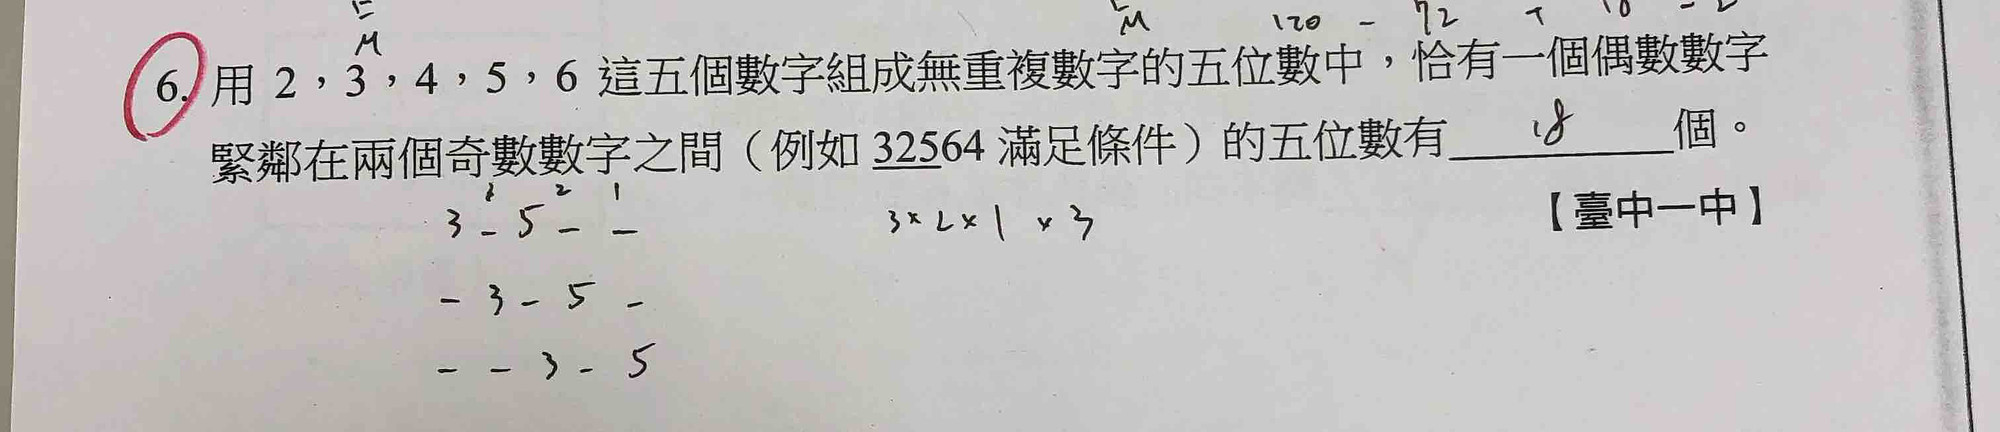 M M 120 - 72 + 18 -
6. 用 2，3，4，5，6 這五個數字組成無重複數字的五位數中，恰有一個偶數數字
緊鄰在兩個奇數數字之間（例如 32564 滿足條件）的五位數有 18 個。
【臺中一中】
3 2 1
3 _ 5 _ _ 3×2×1×3
_ 3 _ 5 _
_ _ 3 _ 5